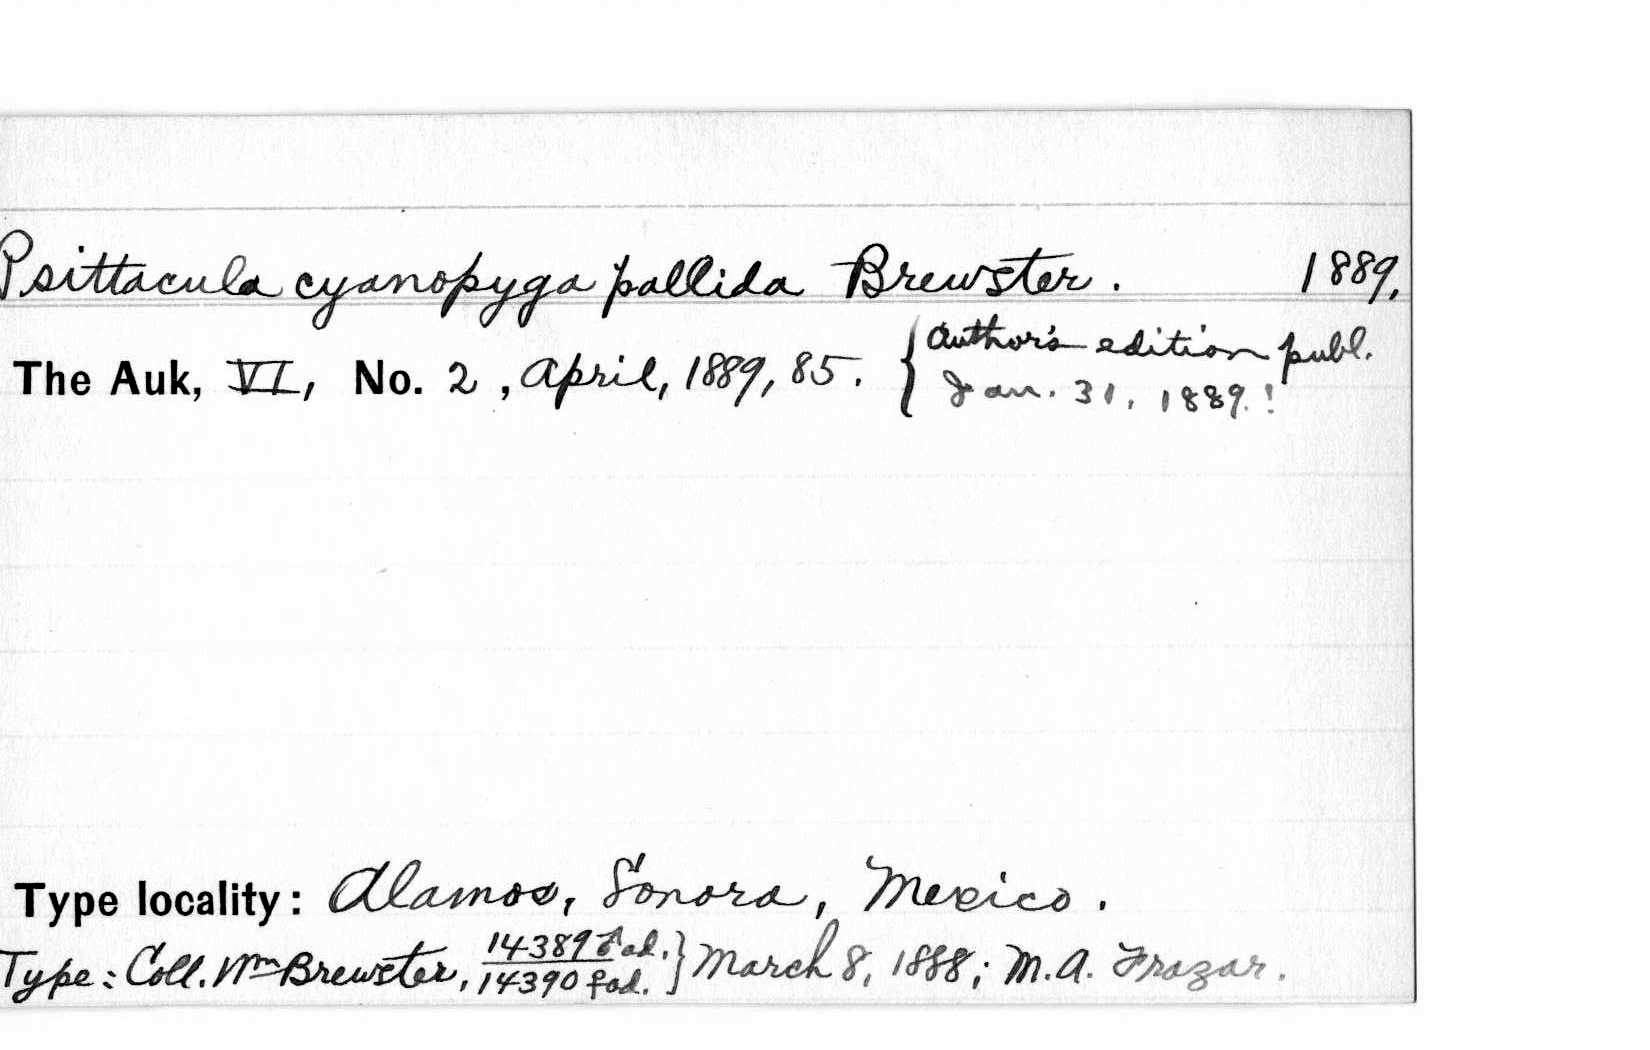 Psittacula cyanopyga pallida Brewster. 1889,
The Auk, VI, No. 2, April, 1889, 85. { Author's edition publ.
Jan. 31, 1889.!
Type locality: Alamos, Sonora, Mexico.
Type: Coll. Wm Brewster, 14389 ♂ ad. } March 8, 1888; M.A. Frazar.
14390 ♀ ad.